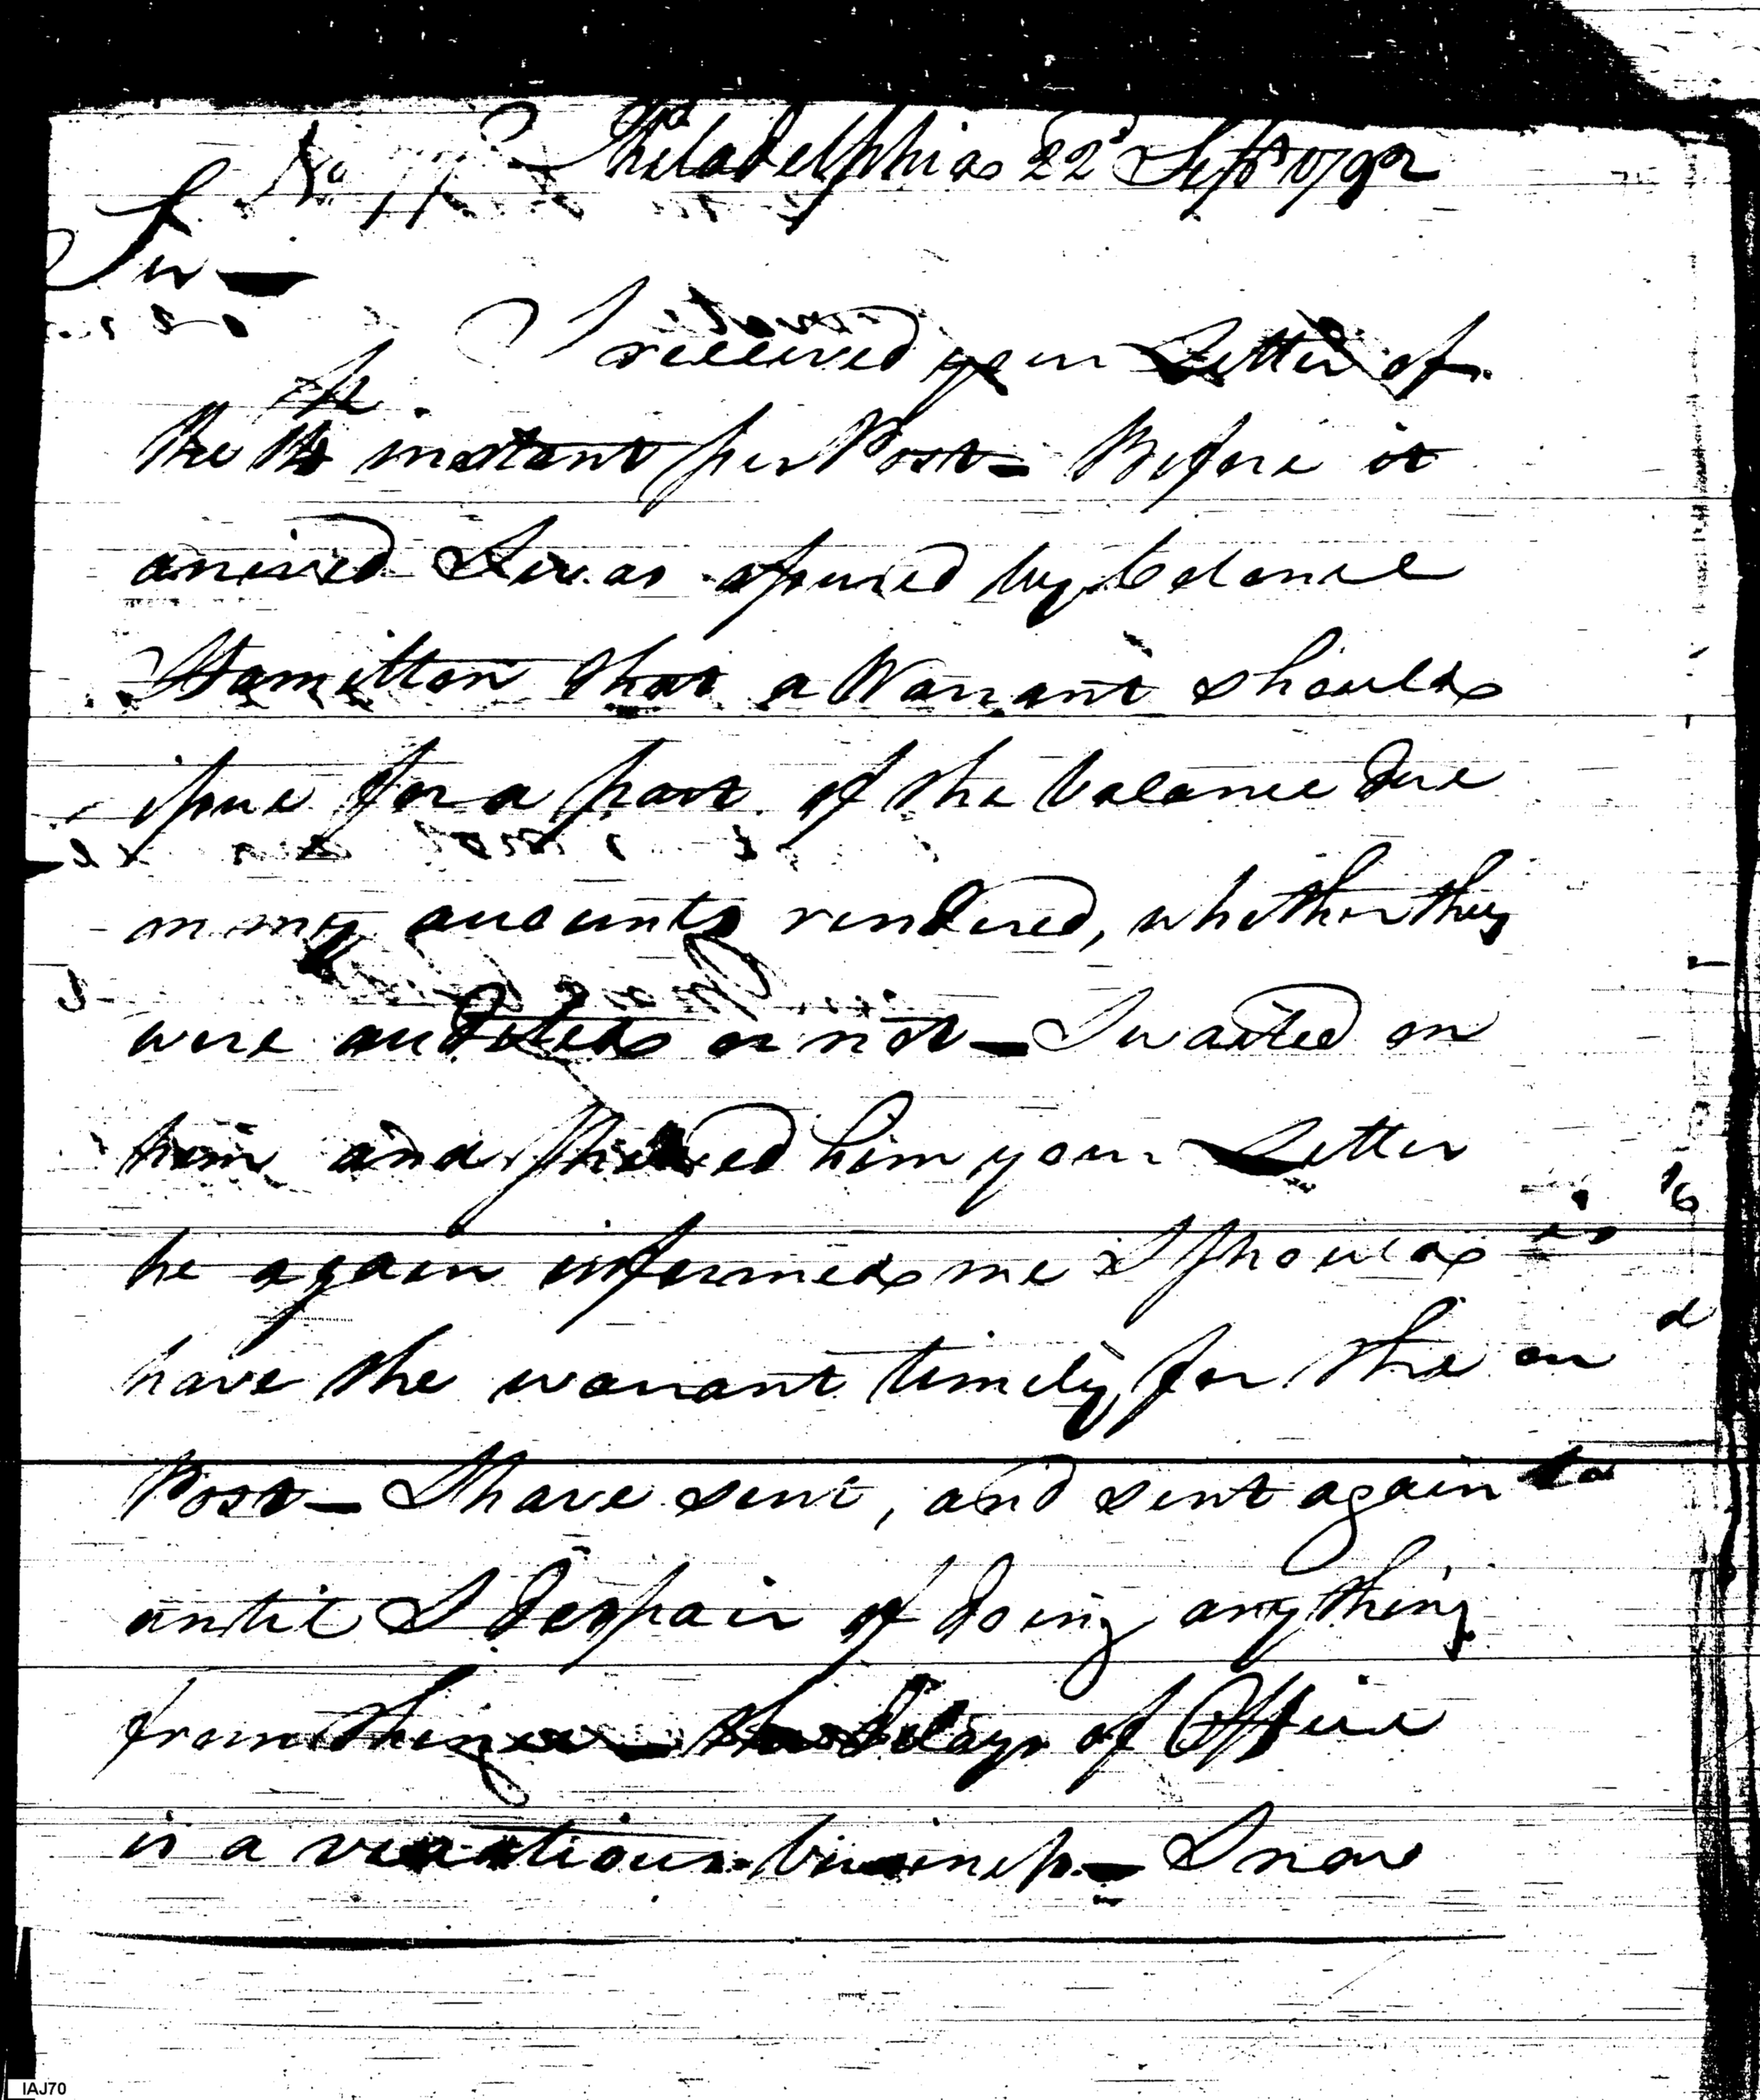 No 77 Philadelphia 22d Septr 1792
Sir —
I received your Letter of
the instant per Post — Before it
arrived I was assured by Colonel
Hamilton that a Warrant should
issue for a part of the balance due
on my accounts rendered, whether they
were audited or not — I waited on
him and shewed him your Letter
he again informed me I should
have the warrant timely for the
Post — I have sent, and sent again
until I despair of doing any thing
from the delays of Office
is a vexatious business — I now
IAJ70